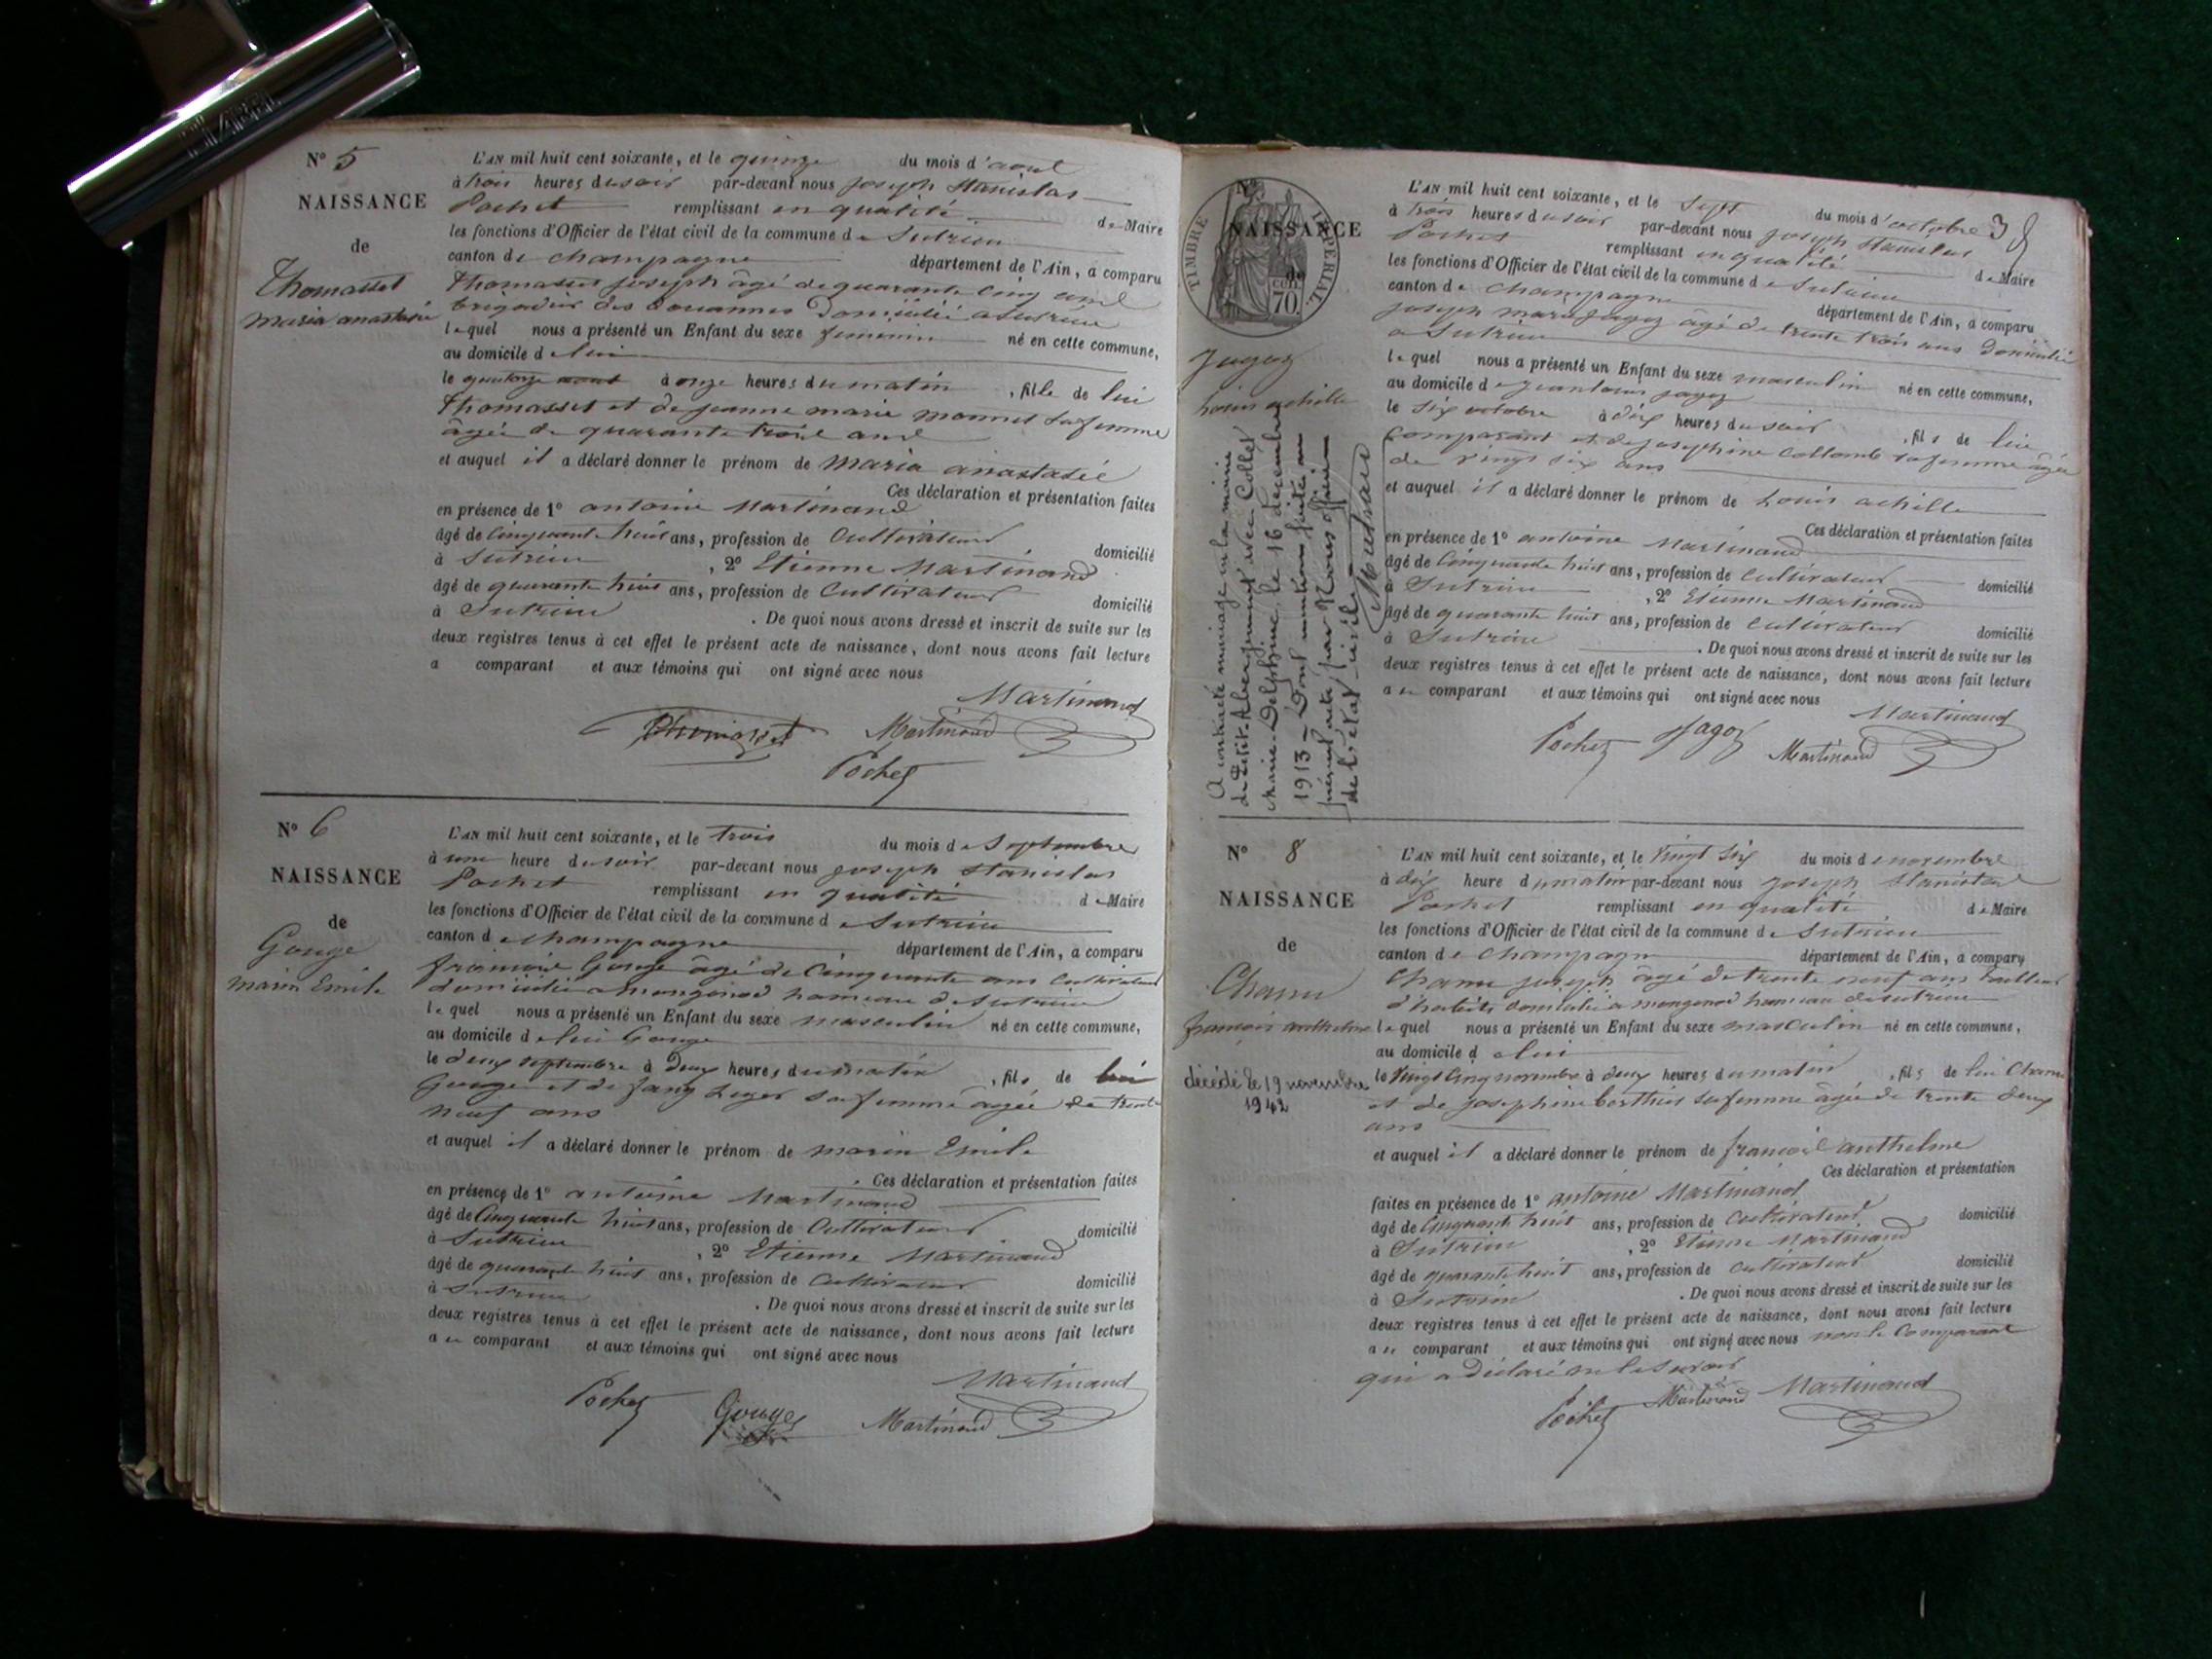 N° 5
NAISSANCE
de
Thomasset
maria anastasie
L'AN mil huit cent soixante, et le quinze du mois d'aout
à trois heures du soir par-devant nous joseph Stanislas
Pochet remplissant en qualité de Maire
les fonctions d'Officier de l'état civil de la commune de Sutrieu
canton de champagne département de l'Ain, a comparu
Thomasset joseph âgé de quarante cinq ans
brigadier des douannes domicilié a Sutrieu
lequel nous a présenté un Enfant du sexe feminin né en cette commune,
au domicile de lui
le quatorze aout à onze heures du matin, fille de lui
Thomasset et de jeanne marie monnet sa femme
âgée de quarante trois ans
et auquel il a déclaré donner le prénom de maria anastasie
Ces déclaration et présentation faites
en présence de 1° antoine Martinand
âgé de Cinquante huit ans, profession de Cultivateur domicilié
à Sutrieu, 2° Etienne Martinand
âgé de quarante huit ans, profession de Cultivateur domicilié
à Sutrieu. De quoi nous avons dressé et inscrit de suite sur les
deux registres tenus à cet effet le présent acte de naissance, dont nous avons fait lecture
a comparant et aux témoins qui ont signé avec nous
Martinand
Thomasset Martinand
Pochet
N° 6
NAISSANCE
de
Gouge
marin Emile
L'AN mil huit cent soixante, et le trois du mois de Septembre
à une heure du soir par-devant nous joseph Stanislas
Pochet remplissant en qualité de Maire
les fonctions d'Officier de l'état civil de la commune de Sutrieu
canton de champagne département de l'Ain, a comparu
françois Gouge âgé de Cinquante ans Cultivateur
domicilié a mongonod hameau de Sutrieu
lequel nous a présenté un Enfant du sexe masculin né en cette commune,
au domicile de lui Gouge
le deux septembre à deux heures du matin, fils de lui
Gouge et de fany Leger sa femme âgée de trente
neuf ans
et auquel il a déclaré donner le prénom de marin Emile
Ces déclaration et présentation faites
en présence de 1° antoine Martinand
âgé de Cinquante huit ans, profession de Cultivateur domicilié
à Sutrieu, 2° Etienne Martinand
âgé de quarante huit ans, profession de Cultivateur domicilié
à Sutrieu. De quoi nous avons dressé et inscrit de suite sur les
deux registres tenus à cet effet le présent acte de naissance, dont nous avons fait lecture
a u comparant et aux témoins qui ont signé avec nous
Martinand
Pochet Gouge Martinand
38
N°
NAISSANCE
de
TIMBRE IMPERIAL
70 cen.
Jagoz
Louis achille
A contracté mariage en la mairie
de Petit-Abergement avec Collet
Marie-Delphine, le 16 decembre
1913 - Dont mention faite
par Nous officier
de l'état-civil
L'AN mil huit cent soixante, et le Sept du mois d'octobre
à trois heures du soir par-devant nous joseph Stanislas
Pochet remplissant en qualité de Maire
les fonctions d'Officier de l'état civil de la commune de Sutrieu
canton de champagne département de l'Ain, a comparu
joseph marie jagoz âgé de trente trois ans domicilié
a Sutrieu
lequel nous a présenté un Enfant du sexe masculin né en cette commune,
au domicile de jagoz
le Six octobre à dix heures du soir, fils de lui
Comparant et de josephine Collomb sa femme âgée
de vingt six ans
et auquel il a déclaré donner le prénom de Louis achille
Ces déclaration et présentation faites
en présence de 1° antoine Martinand
âgé de Cinquante huit ans, profession de Cultivateur domicilié
à Sutrieu, 2° Etienne Martinand
âgé de quarante huit ans, profession de Cultivateur domicilié
à Sutrieu. De quoi nous avons dressé et inscrit de suite sur les
deux registres tenus à cet effet le présent acte de naissance, dont nous avons fait lecture
a u comparant et aux témoins qui ont signé avec nous
Martinand
Pochet Jagoz Martinand
N° 8
NAISSANCE
de
Chanu
françois anthelme
décédé le 19 novembre
1942
L'AN mil huit cent soixante, et le Vingt Six du mois de novembre
à dix heure du matin par-devant nous joseph Stanislas
Pochet remplissant en qualité de Maire
les fonctions d'Officier de l'état civil de la commune de Sutrieu
canton de Champagne département de l'Ain, a comparu
Chanu joseph âgé de trente neuf ans tailleur
d'habits domicilié a mongonod hameau de sutrieu
lequel nous a présenté un Enfant du sexe masculin né en cette commune,
au domicile de lui
le Vingt Cinq novembre à deux heures du matin, fils de lui Chanu
et de josephine berthier sa femme âgée de trente deux
ans
et auquel il a déclaré donner le prénom de françois anthelme
Ces déclaration et présentation
faites en présence de 1° antoine Martinand
âgé de Cinquante huit ans, profession de Cultivateur domicilié
à Sutrieu, 2° Etienne Martinand
âgé de quarante huit ans, profession de Cultivateur domicilié
à Sutrieu. De quoi nous avons dressé et inscrit de suite sur les
deux registres tenus à cet effet le présent acte de naissance, dont nous avons fait lecture
a u comparant et aux témoins qui ont signé avec nous non le Comparant
qui a déclaré ne le savoir
Pochet Martinand Martinand